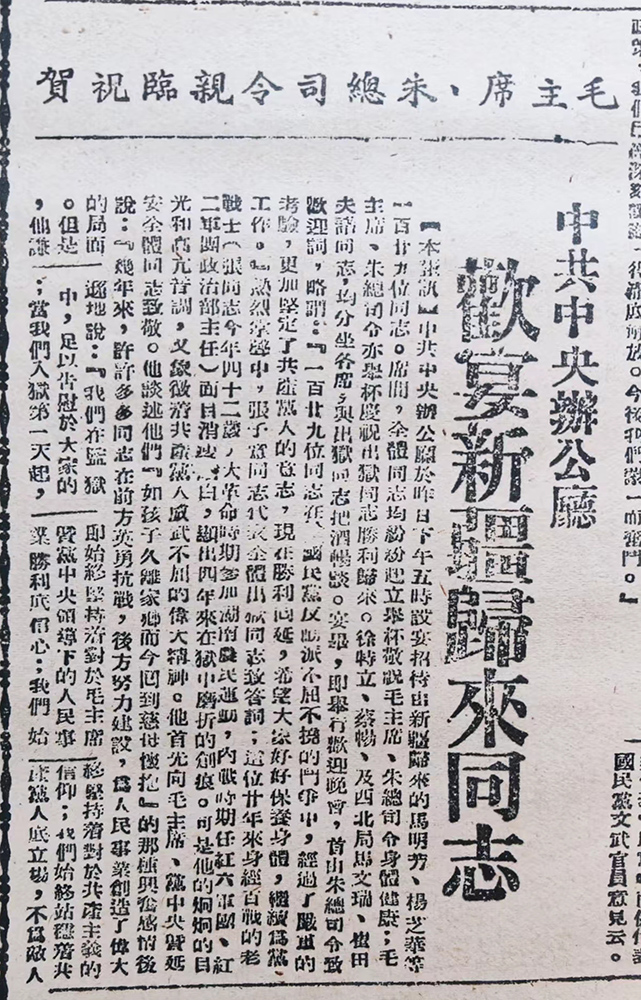 毛主席、朱總司令親臨祝賀
中共中央辦公廳
歡宴新疆歸來同志
【本報訊】中共中央辦公廳於昨日下午五時設宴招待出新疆歸來的馬明芳、楊芝華等
一百廿九位同志。席間,全體同志均紛紛起立舉杯敬祝毛主席、朱總司令身體健康;毛
主席、朱總司令亦舉杯慶祝出獄同志勝利歸來。徐特立、蔡暢、及西北局馬文瑞、崔田
夫諸同志,均分坐各席,與出獄同志把酒暢談。宴畢,即舉行歡迎晚會,首由朱總司令致
歡迎詞,略謂:『一百廿九位同志在國民黨反動派不屈不撓的鬥爭中,經過了嚴重的
考驗,更加堅定了共產黨人的意志,現在勝利回延,希望大家好好保養身體,繼續爲黨
工作。』熱烈掌聲中,張子意同志代表全體出獄同志致答詞;這位廿年來身經百戰的老
戰士(張同志今年四十二歲,大革命時期參加湖南農民運動,內戰時期任紅六軍團、紅
二軍團政治部主任)面目消瘦蒼白,顯出四年來在獄中磨折的創痕。可是他的炯炯的目
光和高亢音調,又象徵着共產黨人威武不屈的偉大精神。他首先向毛主席、黨中央暨延
安全體同志致敬。他談述他們『如孩子久離家鄉而今回到慈母懷抱』的那種興奮感情後
說:『幾年來,許許多多同志在前方英勇抗戰,後方努力建設,爲人民事業創造了偉大
的局面
。但是
,他謙
遜地說:『我們在監獄
中,足以告慰於大家的
;當我們入獄第一天起,
即始終堅持着對於毛主席
暨黨中央領導下的人民事
業勝利底信心;我們始
終堅持着對於共產主義的
信仰;我們始終站穩着共
產黨人底立場,不爲敵人
國民黨文武官員意見云。